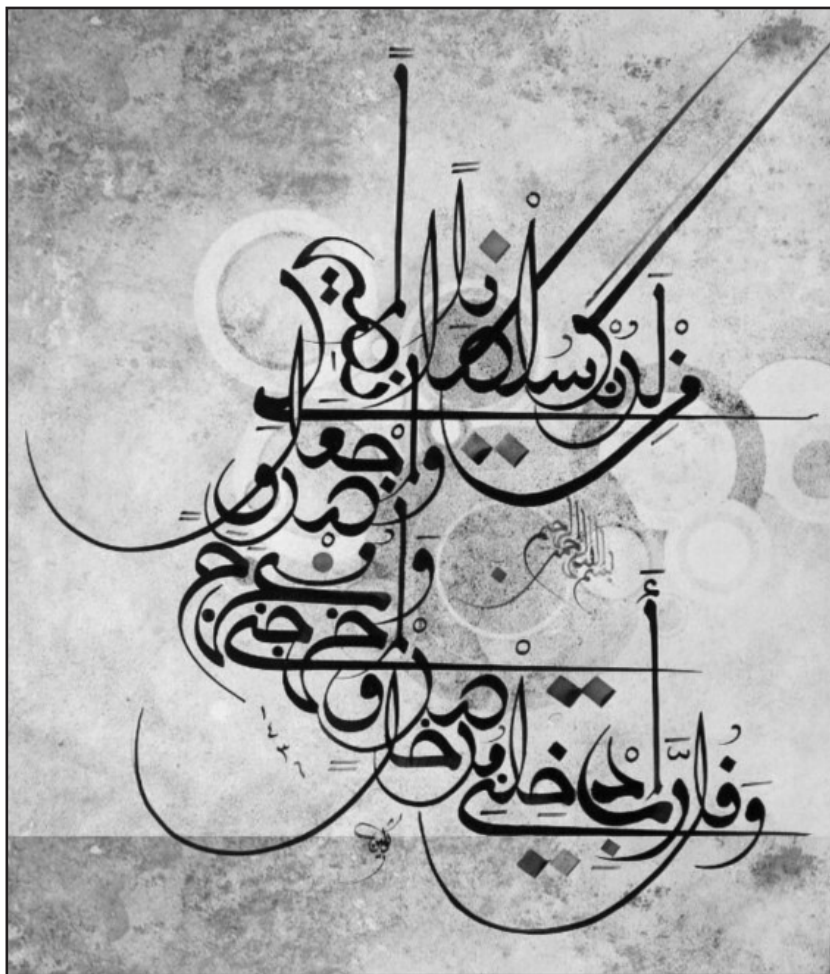 بسم الله الرحمن الرحيم
وَقُل رَّبِّ أَدْخِلْنِي مُدْخَلَ صِدْقٍ
وَأَخْرِجْنِي مُخْرَجَ صِدْقٍ
وَاجْعَل لِّي
مِن لَّدُنْكَ سُلْطَانًا نَّصِيرًا